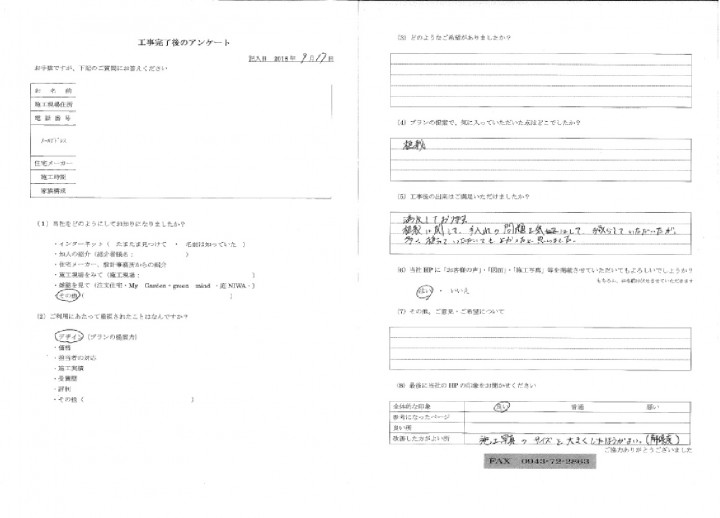 工事完了後のアンケート
記入日 2018年 9月17日
お手数ですが、下記のご質問にお答えください
お名前
施工現場住所
電話番号
メールアドレス
住宅メーカー
施工時期
家族構成
(1)当社をどのようにしてお知りになりましたか?
・インターネット( たまたま見つけて ・ 名前は知っていた )
・知人の紹介(紹介者様名: )
・住宅メーカー、設計事務所からの紹介
・施工現場をみて(施工現場: )
・雑誌を見て(注文住宅・My Garden・green mind・庭NIWA・ )
・その他( )
(2)ご利用にあたって重視されたことはなんですか?
・デザイン(プランの提案力)
・価格
・担当者の対応
・施工実績
・受賞歴
・評判
・その他( )
(3)どのようなご希望がありましたか?
(4)プランの提案で、気に入っていただいた点はどこでしたか?
植栽
(5)工事後の出来はご満足いただけましたか?
満足しております
植栽に関して、手入れの問題を気にして 減らしていただいたが、
多く植えていただいてもよかったと思いました。
(6)当社HPに「お客様の声」・「図面」・「施工写真」等を掲載させていただいてもよろしいでしょうか?
もちろん、お名前はふせさせていただきます
はい ・ いいえ
(7)その他、ご意見・ご希望について
(8)最後に当社のHPの印象をお聞かせください
全体的な印象 良い 普通 悪い
参考になったページ
良い所
改善した方がよい所 施工写真のサイズを大きくしたほうがよい。(解像度)
ご協力ありがとうございました
FAX 0943-72-2863